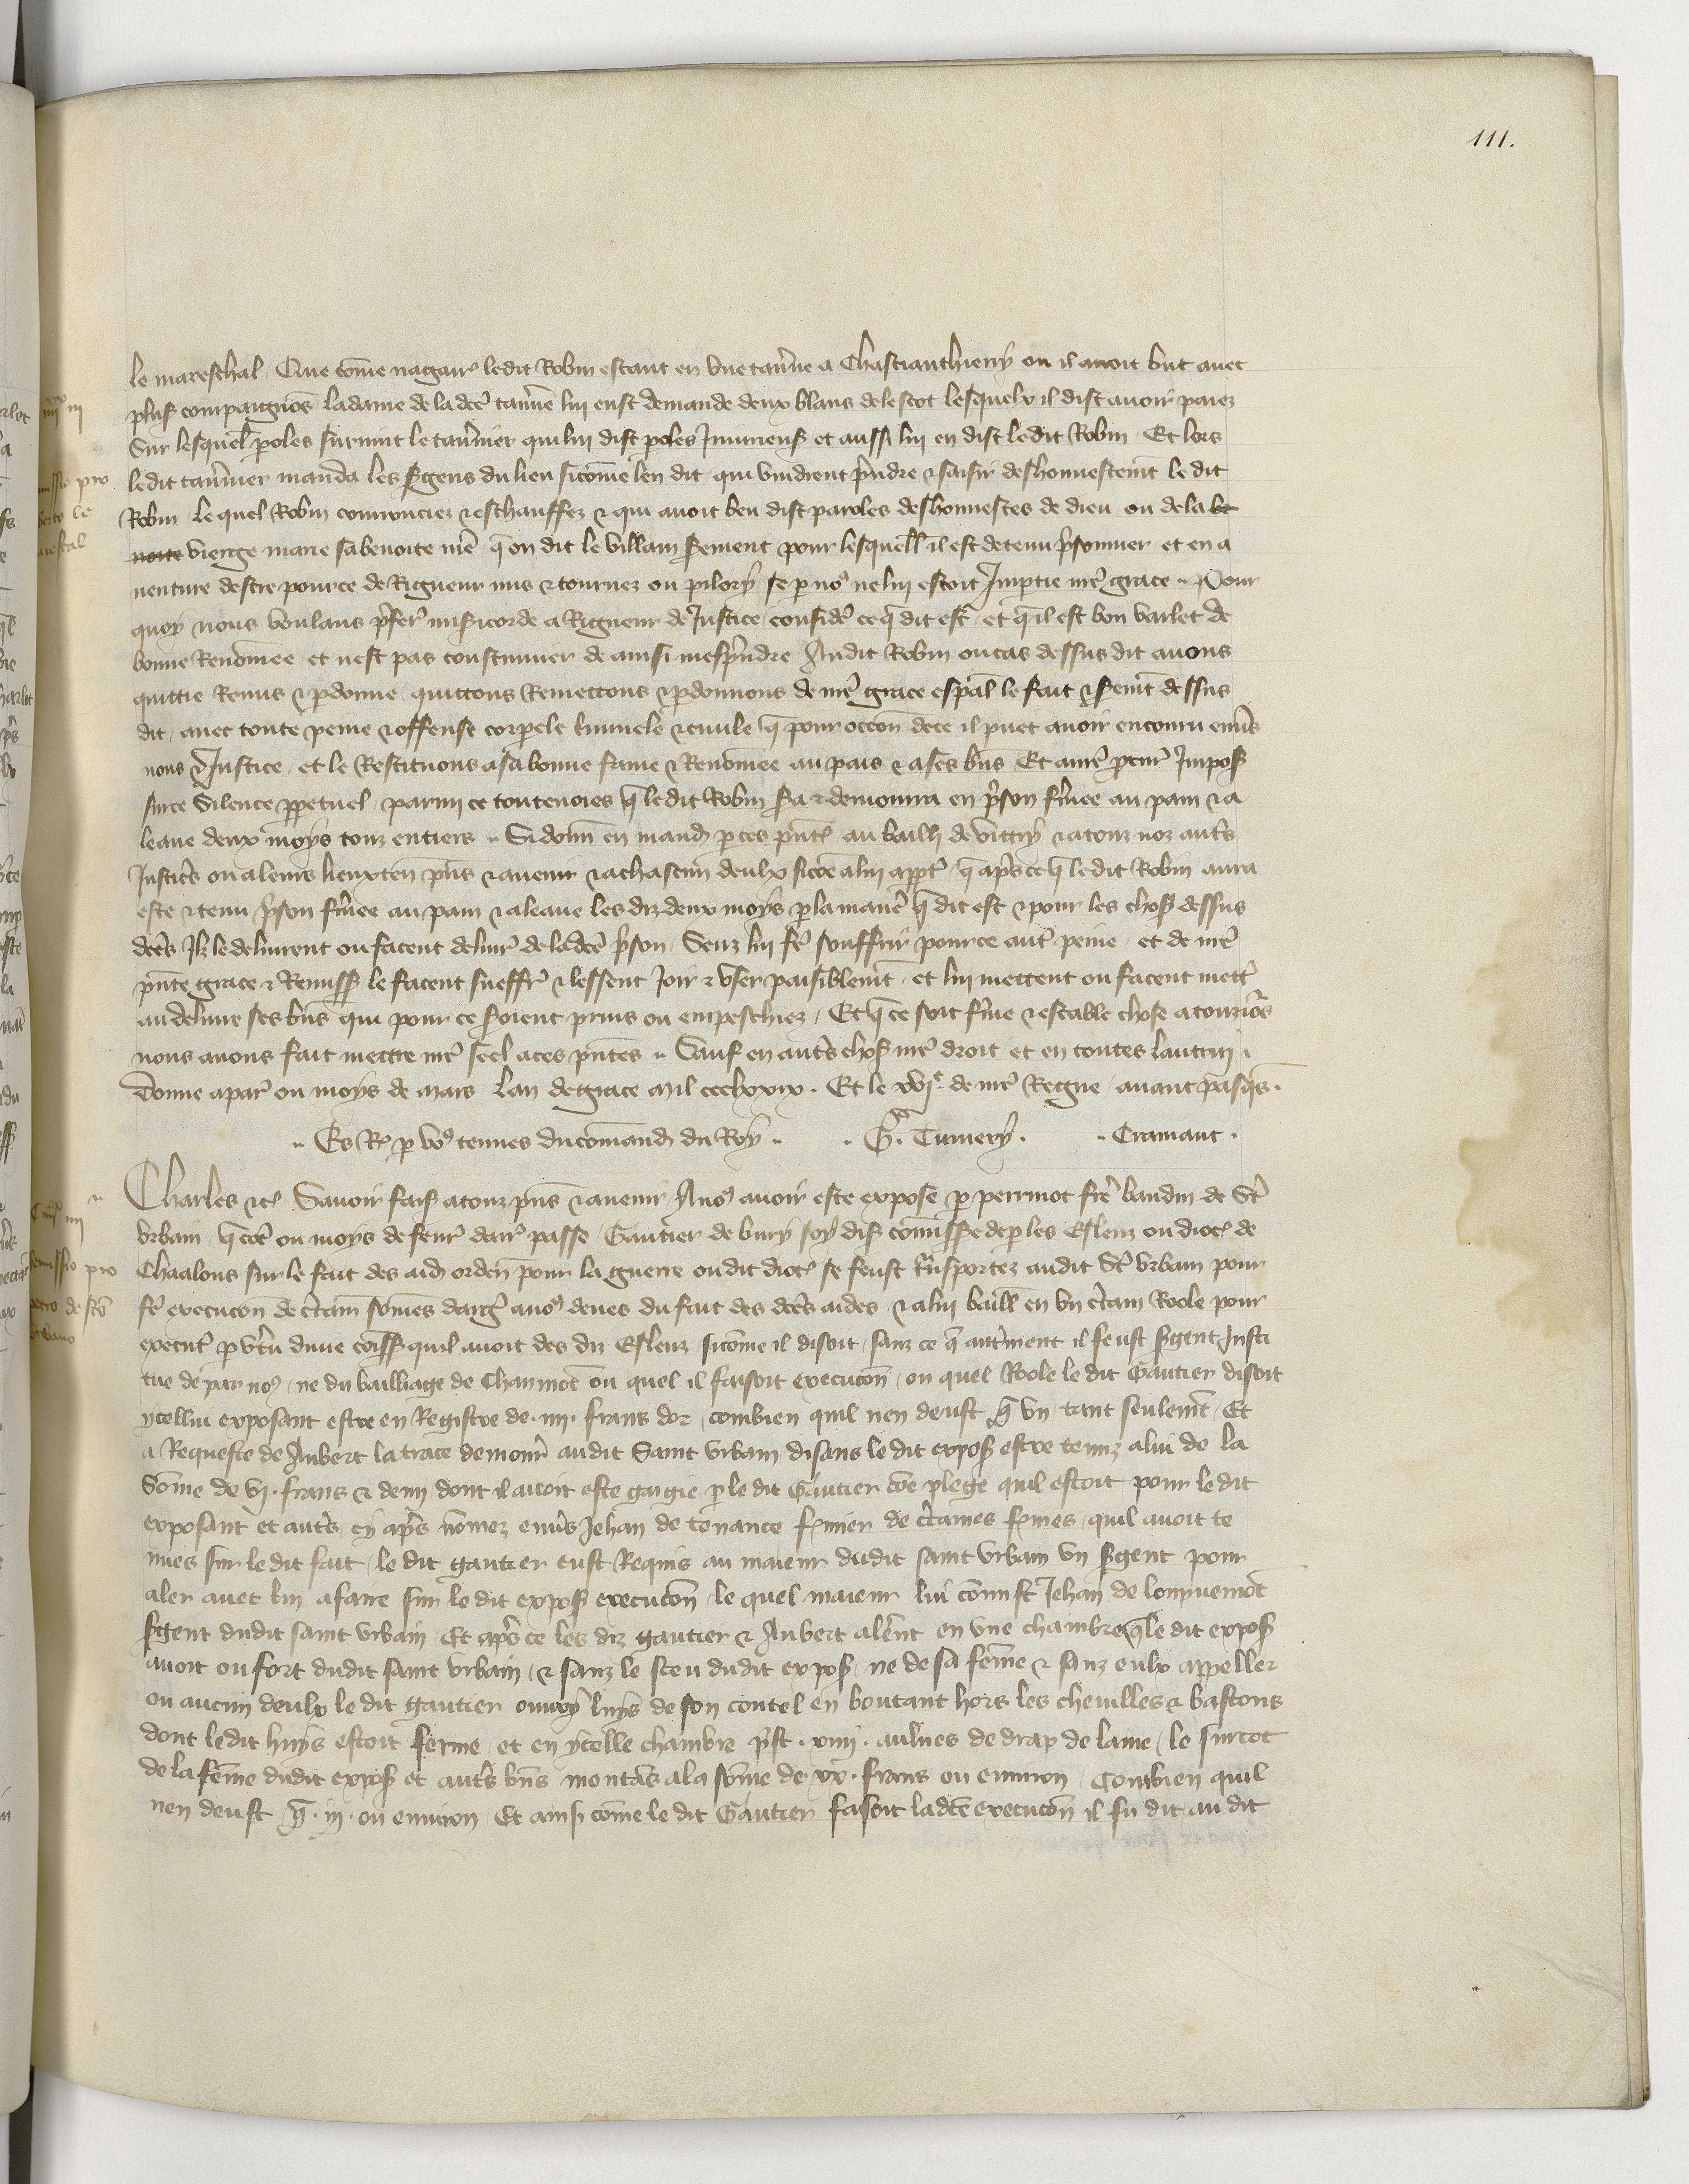 111.
le mareschal. Que cõme nagair̃ ledit Robin estant en une tav̾ne a Chastiauthierry ou il avoit but avec
plus̃ compaignõs ladame de la dc̃e tav̾ne lui eust demande deux blans de lescot lesquelx il dist avoir paiez
Sur lesquel̃ ꝑoles survint le tav̾nier qui lui dist ꝑoles Jniurieus̃ et aussi lui en dist le dit Robin Et lors
ledit tav̾nier manda les s̾gens du lieu sicõme len dit qui vindrent p̾ndre ⁊ saisir deshonnestem̃t le dit
Robin le quel Robin courrouciez ⁊ eschauffez ⁊ qui avoit beu dist paroles deshonnestes de dieu ou de la be
noite vierge marie sa benoite me̾ q̃ on dit le villain s̾ement pour lesquell̃ il est detenu p̾sonnier et en a
venture destre pour ce de Rigueur mis ⁊ tournez ou pilory se ꝑ no⁹ ne lui estoit Jmptie nr̃e grace. Pour
quoy nous voulans p̾fer̃ mis̾icorde a Rigueur de Justice, consider̃ ce q̃ dit est, et q̃ il est bon varlet de
bonne Renõmee et nest pas coustumier de ainsi mesp̾ndre Audit Robin ou cas dessus dit avons
quittie Remis ⁊ ꝑdonne, quictons Remettons ⁊ ꝑdonnons de nr̃e grace esp̃al le fait ⁊ s̾em̃t dessus
dit, avec toute peine ⁊ offense corꝑele crimnele ⁊ civile q̃ pour occõn de ce il puet avoir encouru env̾s
nous ⁊ Justice, et le Restituons a sa bonne fame ⁊ Renõmee au pais ⁊ a ses bñs Et a nr̃e ꝓcur̃ Jmpos̃
sur ce Silence ꝑpetuel, parmi ce toutevoies q̃ ledit Robin s̾a ⁊ demourra en p̾son f̾mee au pain ⁊ a
leaue deux moys touz entiers. Si donñ en mand̃ ꝑ ces p̃nt̃ au bailli de vittry ⁊ a touz noz aut̾s
Justic̾s ou a leurs lieuxteñ p̃ns ⁊ avenir ⁊ a chascun deulx sicõe a lui appt̾ q̃ ap̾s ce q̃ ledit Robin aura
este ⁊ tenu p̾son f̾mee au pain ⁊ a leaue les diz deux moys ꝑ la manie̾ q̃ dit est ⁊ pour les chos̃ dessus
dc̃es Jlz le delivrent ou facent delivr̾ de la dc̃e p̾son, Senz lui fe̾ souffrir pour ce aut̾ peine, et de nr̃e
p̃nte grace ⁊ Remiss̃ le facent sueffr̾ ⁊ lessent Joir ⁊ user paisiblem̃t, et lui mettent ou facent mett̾
au delivre ses bñs qui pour ce s̾oient prins ou empeschiez, Et q̃ ce soit f̾me ⁊ estable chose a touzio̾s
nous avons fait mettre nr̃e seel a ces p̃ntes. Sauf en aut̾s chos̃ nr̃e droit et en toutes lautrui.
Donne a par̾ ou moys de mars lan de grace mil ccclxxix. Et le xvjᵉ. de nr̃e Regne, avant pasq̃s.
Es Rꝫ ꝑ vo⁹ tenues du cõmand̃ du Roy. G. Tumery. Cramaut.
Charles ⁊c̃ Savoir fais̃ a touz p̃ns ⁊ avenir A no⁹ avoir este expose ꝑ perrinot fre̾ baudin de St̾
Urbain, q̃ cõe ou moys de fevr̾ dar̾ passe Gautier de bury soy dis̃ cõmiss̃e de ꝑ les Esleuz ou dioc̃ de
Chaalons sur le fait des aid̃ ordeñ pour la guerre ou dit dioc̃ se feust t̾nsportez audit St̾ Urbain pour
fe̾ execucõn de c̾tain̾ sõmes darg̾ a no⁹ deues du fait des dc̃s aides ⁊ a lui baill̃ en un c̾tain Roole pour
execut̾ ꝑ v̾tu dune cõiss̃ quil avoit des diz Esleuz sicõme il disoit, sanz ce q̃ autr̾ment il feust s̾gent Jnsti
tue de par no⁹, ne du bailliage de Chaumõt ou quel il faisoit execucõn, ou quel Roole le dit Gautier disoit
ycellui exposant estre en Registre de. iiii. frans dor, combien quil nen deust q̃ un tant seulem̃t, Et
a Requeste de Aubert la trace demour̾ audit Saint Urbain disans le dit expos̃ estre tenuz a lui de la
Sõme de vj. frans ⁊ demi dont il avoit este gaigie ꝑ le dit Gautier cõe plege quil estoit pour le dit
exposant et aut̾s cy ap̾s nõmez env̾s Jehan de tenance f̾mier de c̾taines f̾mes, quil avoit te
nues sur le dit fait, le dit gautier eust Requis au maieur dudit saint Urbain un s̾gent pour
aler avec lui a faire sur le dit expos̃ execucõn, le quel maieur lui cõmist Jehan de
s̾gent dudit saint Urbain, Et ap̾s ce les diz gautier ⁊ Aubert aler̃nt en une chambre q̃ le dit expos̃
avoit ou fort dudit saint Urbain, ⁊ sanz le sceu dudit expos̃ ne de sa fẽme ⁊ sanz eulx appeller
ou aucun deulx le dit gautier ouvry luys de son coutel en boutant hors les chevilles ⁊ bastons
dont ledit huys estoit ferme, et en ycelle chambre p̾st. xiiij. aulnes de drap de laine, le surcot
de la fẽme dudit expos̃ et aut̾s bñs montãs a la sõme de. xx. frans ou environ, Combien quil
nen deust q̃. iij. ou environ, Et ainsi cõme le dit Gautier faisoit la dc̃e execucõn il fu dit au dit